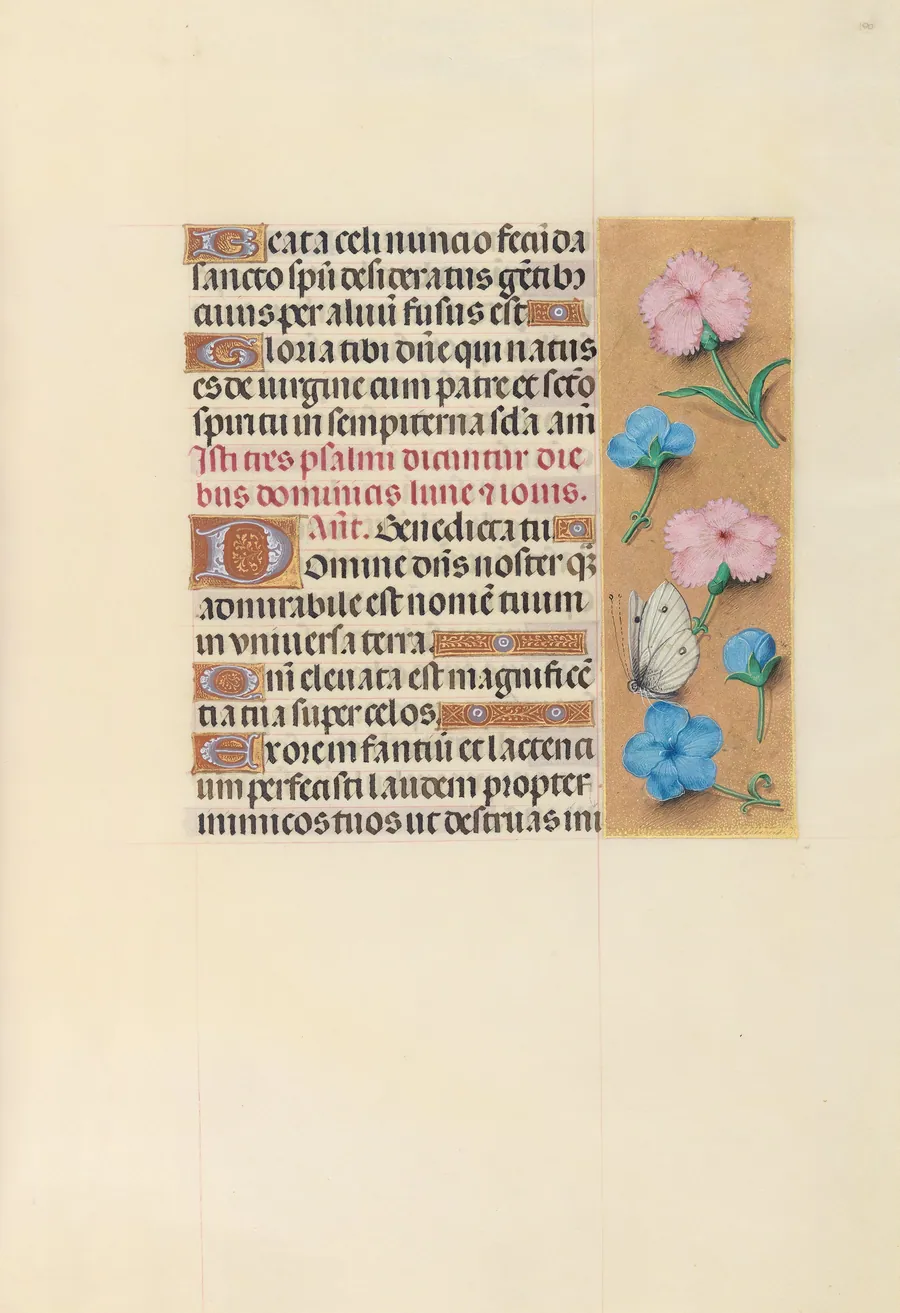 Beata celi nuncio fecūda
sancto spū desideratus gētibꝫ
cuius per aluū fusus est
Gloria tibi dn̄e qui natus
es de uirgine cum patre et sct̄o
spiritu in sempiterna scl̄a am̄
Isti tres psalmi dicuntur die
bus dominicis lune ⁊ iouis.
Ant̄. Benedicta tu
Domine dn̄s noster qͣꝫ
admirabile est nomē tuum
in vniuersa terra.
Qm̄ eleuata est magnificē
tia tua super celos.
Ex ore infantiū et lactenci
um perfecisti laudem propter
inimicos tuos ut destruas ini